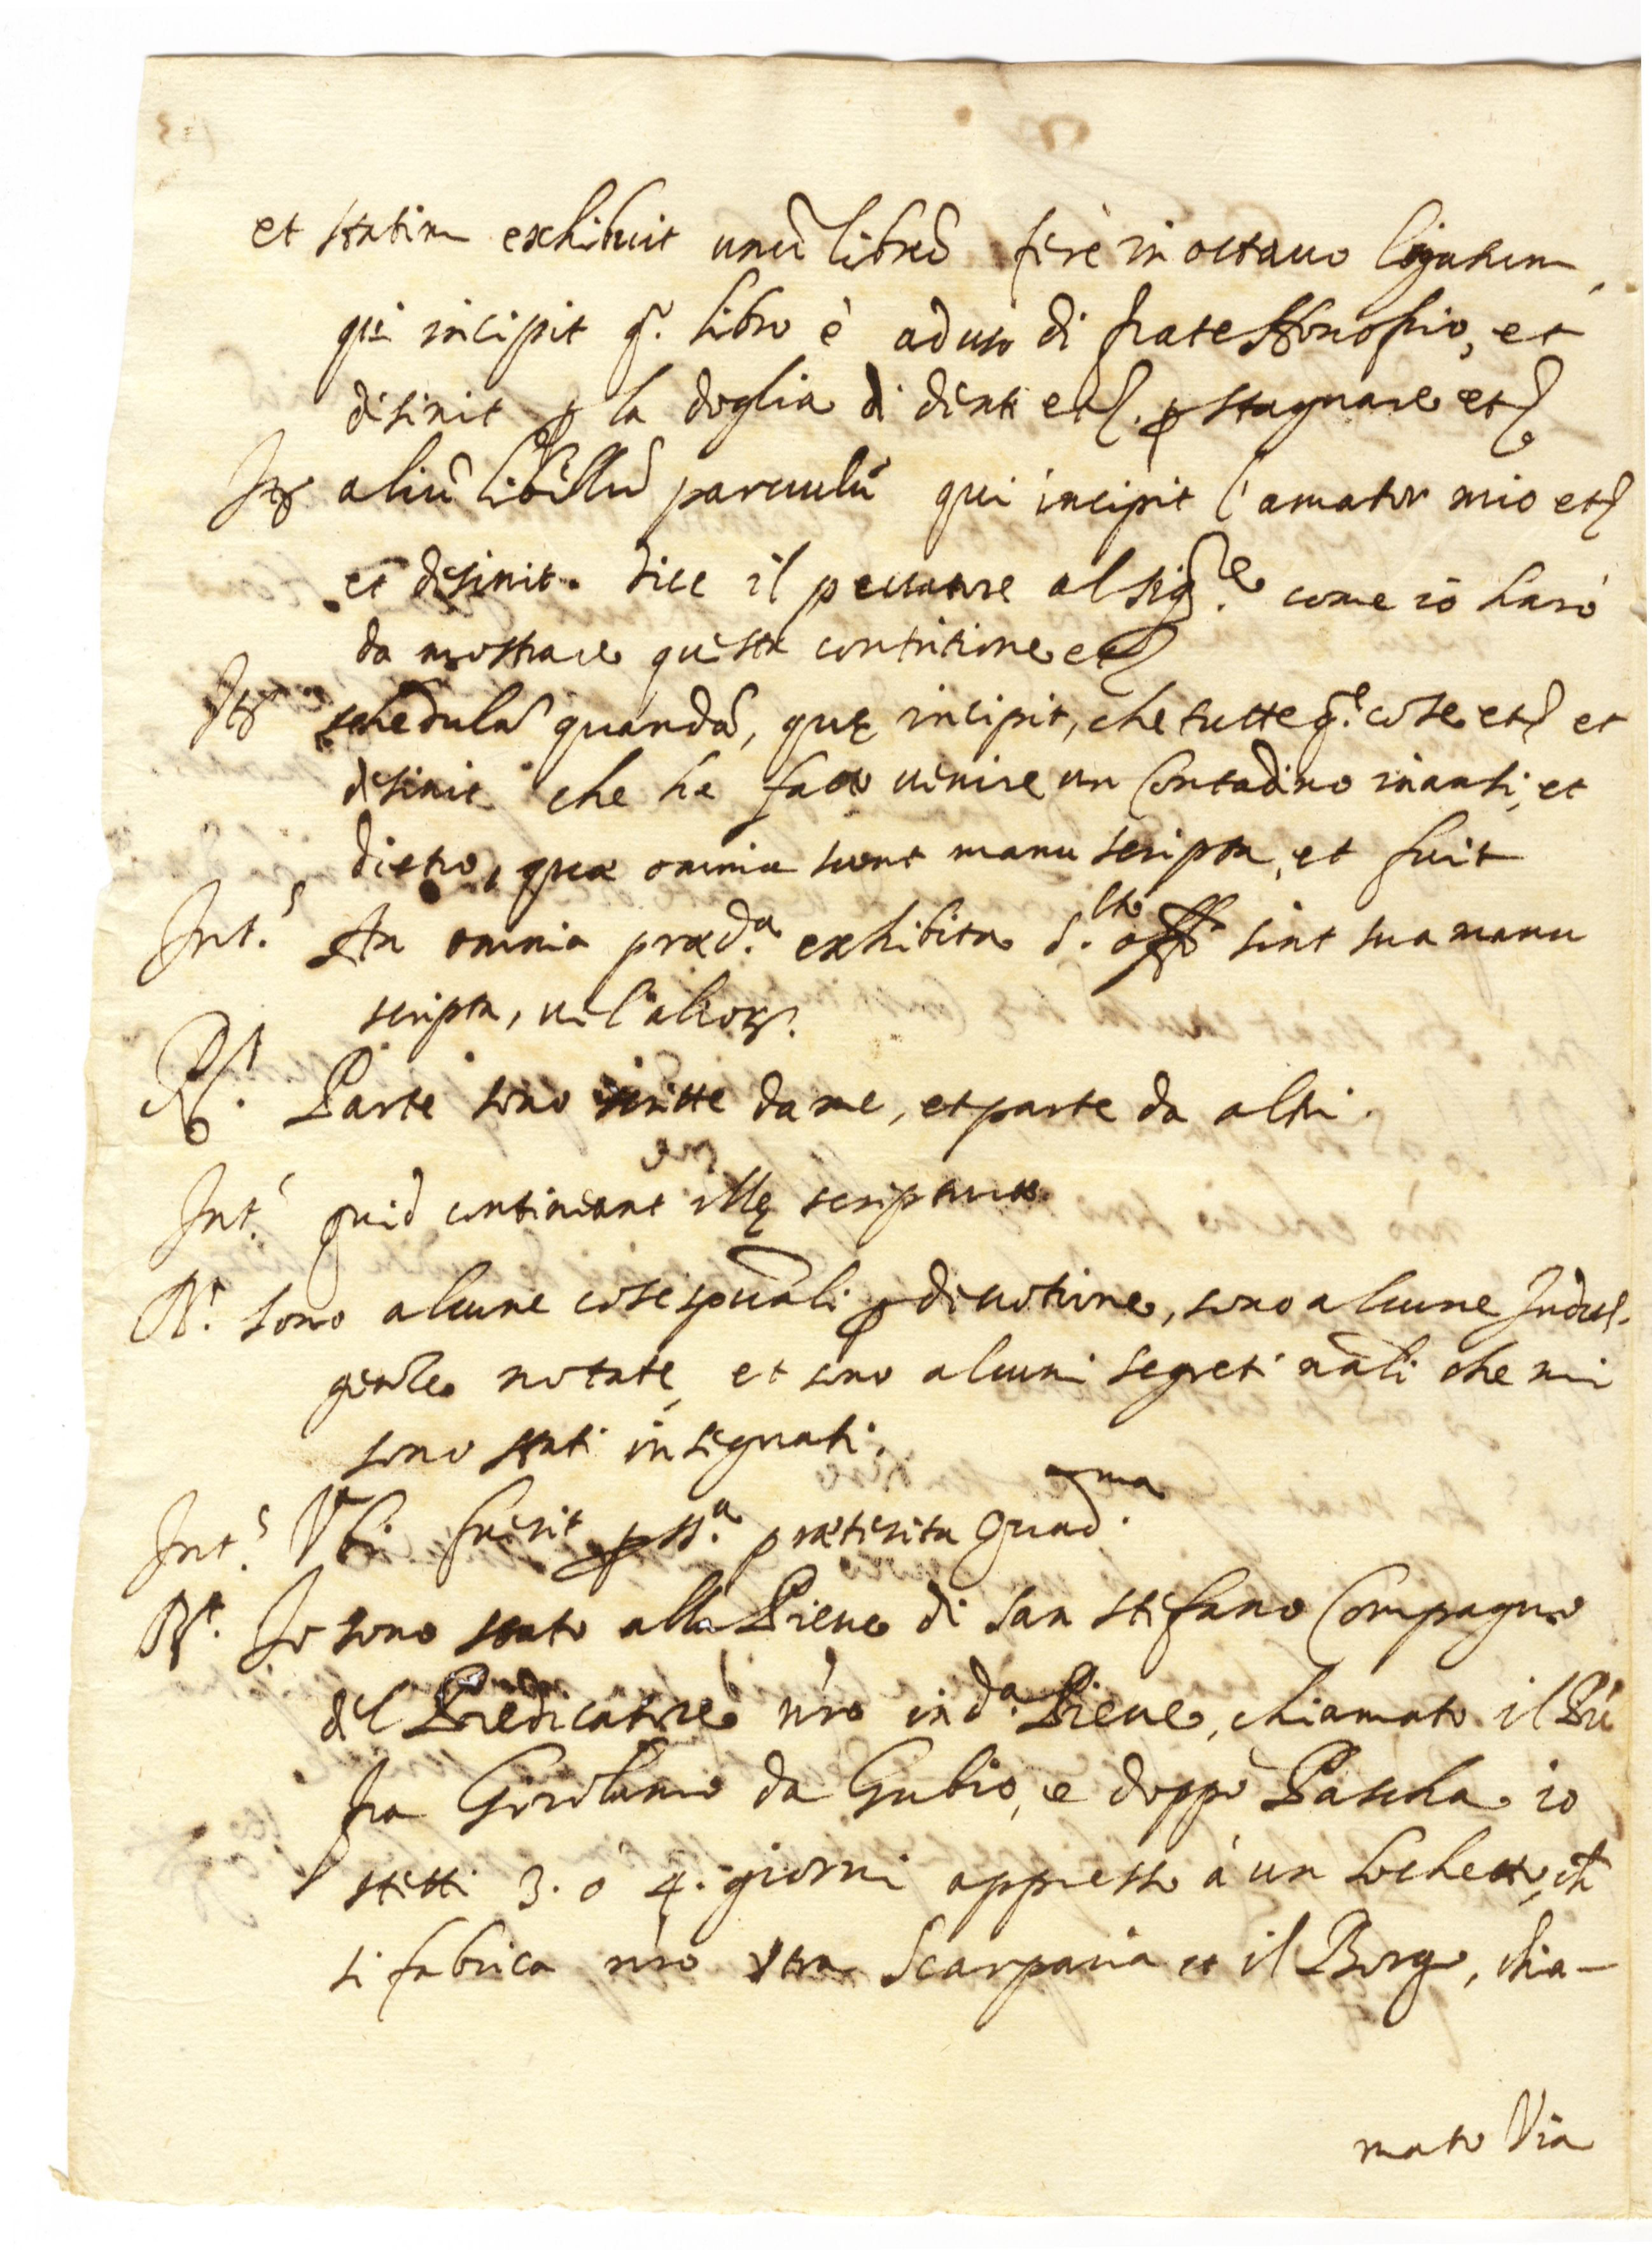 et statim exhibuit unũ librũ ferè in octavo ligatum,
qui incipit q.° libro è ad uso di frate Honofrio, et
desinit ꝑ la doglia di denti etc. ꝑ stagnare etc.
Itẽ aliũ libellũ parvulũ qui incipit l'amator mio etc.
et desinit. dice il peccatore al sig.re come io harò
da mostrare questa contritione etc.
Itẽ schedulã quandã, quę incipit, che tutte q.e cose etc. et
desinit che ha fatto venire un Contadino inanti, et
dietro, quæ omnia sunt manu scripta, et fuit
Int.s An omnia præd.a exhibita s.cto off.o sint sua manu
scripta, vel alior.
R.t Parte sono scritte da me, et parte da altri.
Int.s quid contineant illę scripturæ
R.t sono alcune cose spũali ꝑ divotione, sono alcune Indul-
genze notate, et sono alcuni segreti nãli che mi
sono stati insegnati.
Int.s Ubi fuerit ꝑ ss.a præterita Quad.ma
R.t Io sono stato alla Pieve di San Stefano Compagno
del Predicatore nro in d.a Pieve, chiamato il Prẽ
fra Girolamo da Gubio, e doppò Pascha io
stetti 3. ò 4. giorni appresso à un lochetto, ch̃
si fabrica nro tra Scarparia et il Borgo, chia-
mato Via